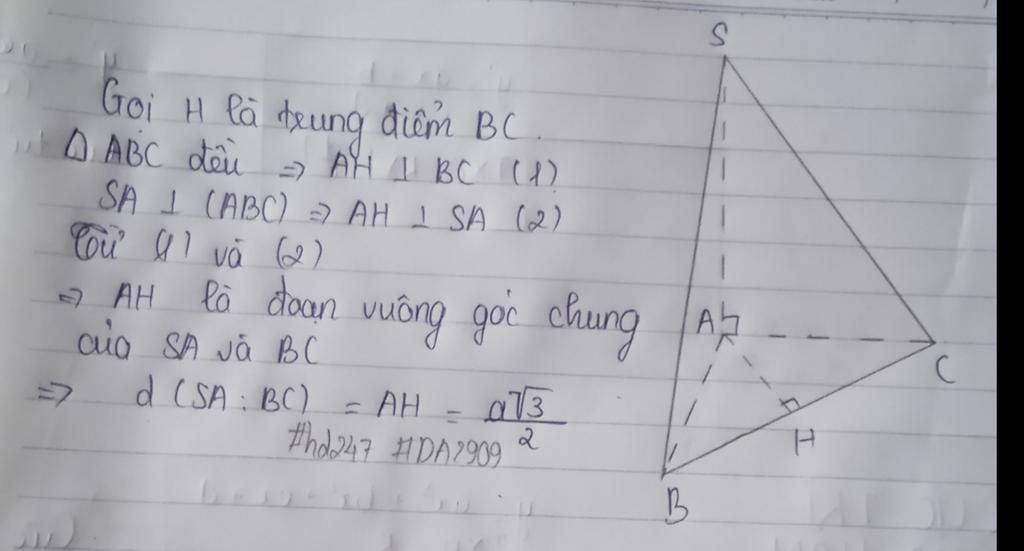 Gọi H là trung điểm BC.
Δ ABC đều => AH ⊥ BC (1)
SA ⊥ (ABC) => AH ⊥ SA (2)
Từ (1) và (2)
=> AH là đoạn vuông góc chung
của SA và BC
=> d (SA; BC) = AH = a√3/2
#hd247 #DA2909
S
A
C
H
B